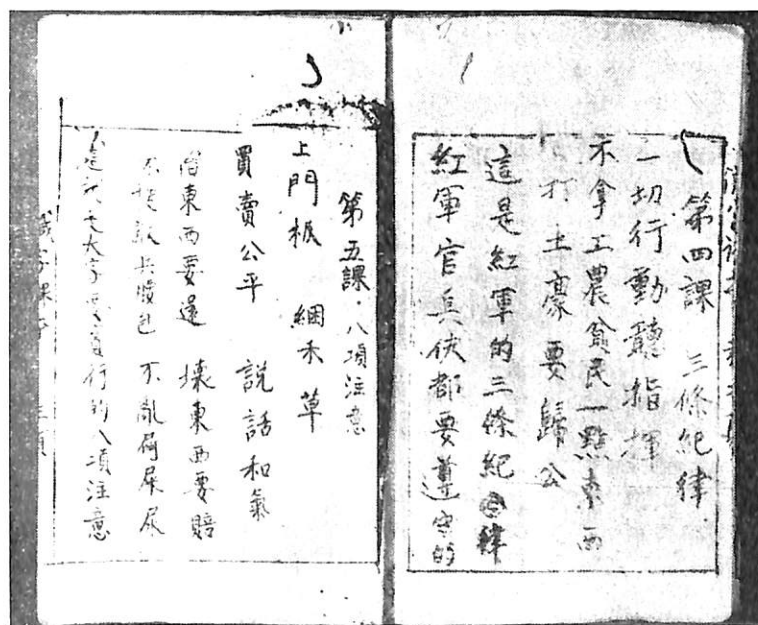 第四課 三條紀律
一切行動聽指揮
不拿工農貧民一點東西
打土豪要歸公
這是紅軍的三條紀律
紅軍官兵伕都要遵守的
第五課·八項注意
上門板 綑禾草
買賣公平 說話和氣
借東西要還 壞東西要賠
不搜俘兵腰包 不亂屙屎尿
是大家要實行的八項注意
識字課本